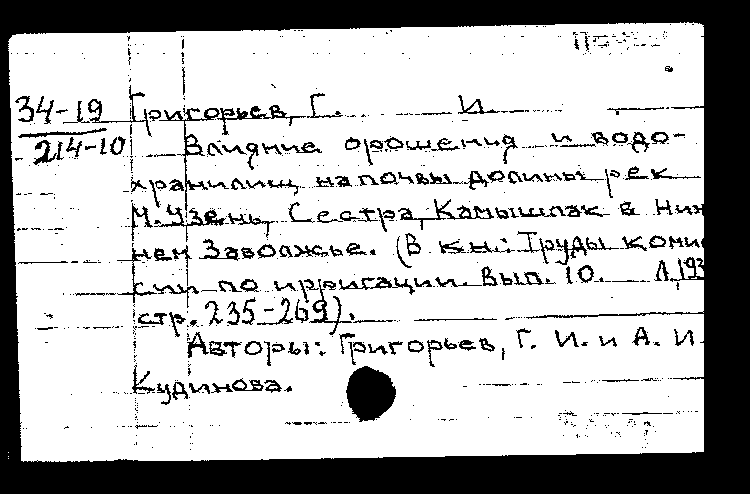 34-19 Григорьев, Г. И.
214-10 Влияние орошения и водо-
хранилищ на почвы долины рек
М. Узень, Сестра, Камышлак в Ниж
нем Заволжье. (В кн.: Труды комис
сии по ирригации. Вып. 10. Л, 193
стр. 235-269).
Авторы: Григорьев, Г. И. и А. И.
Кудинова.